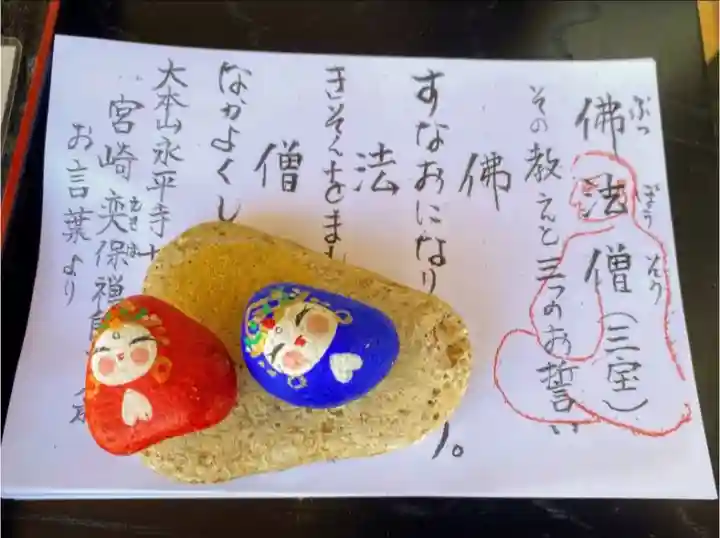 佛法僧(三宝)
ぶっぽうそう
その教えと三つのお誓い
佛
すなおになり
法
きそくをまも
僧
なかよくし
大本山永平寺
宮崎奕保禅師
えきほ
お言葉より